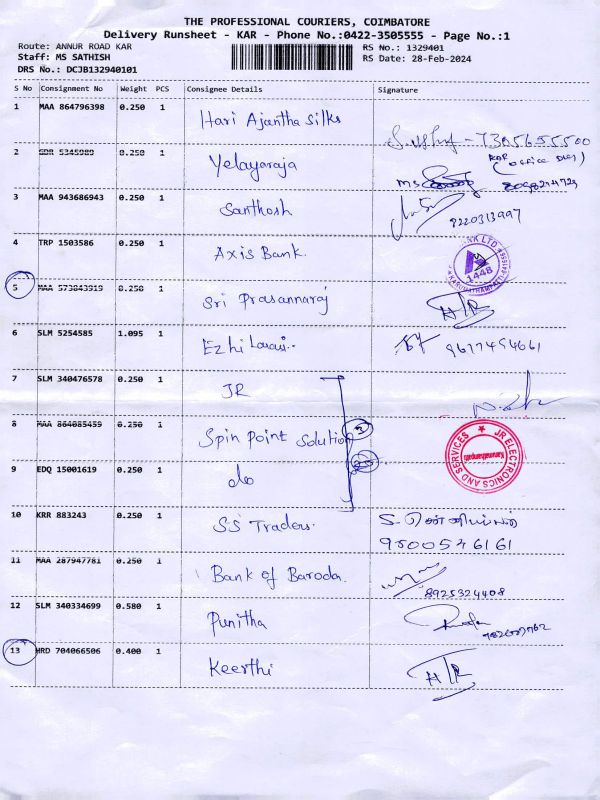 THE PROFESSIONAL COURIERS, COIMBATORE
Delivery Runsheet - KAR - Phone No.:0422-3505555 - Page No.:1
Route: ANNUR ROAD KAR
RS No.: 1329401
Staff: MS SATHISH
RS Date: 28-Feb-2024
DRS No.: DCJB132940101
S No Consignment No Weight PCS Consignee Details Signature
1 MAA 864796398 0.250 1 Hari Ajantha Silks
7305655500
2 5345989 0.250 1 Yelayaraja
(office
3 MAA 943686943 0.250 1 Santhosh
9220313997
4 TRP 1503586 0.250 1 Axis Bank.
1448
5 MAA 573843919 0.250 1 Sri Prasannaraj
6 SLM 5254585 1.095 1 Ezhil
9677494661
7 SLM 340476578 0.250 1 JR
8 MAA 864085459 0.250 1 Spin Point Solution
JR ELECTRONICS AND SERVICES
9 EDQ 15001619 0.250 1 do
10 KRR 883243 0.250 1 SS Traders.
9500546161
11 MAA 287947781 0.250 1 Bank of Baroda.
8925324408
12 SLM 340334699 0.580 1 Punitha
13 HRD 704066506 0.400 1 Keerthi